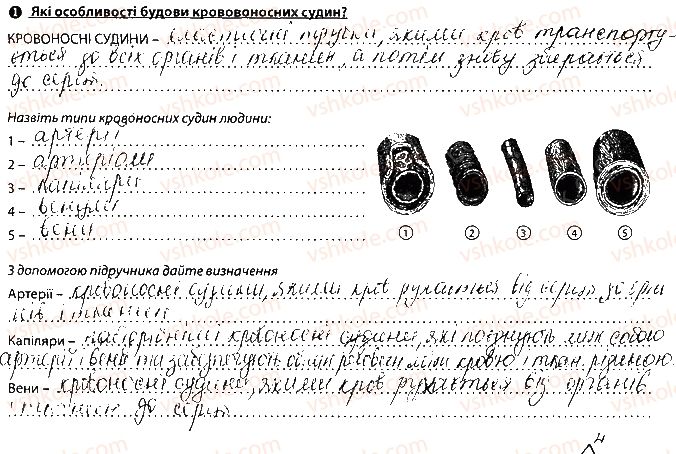 1 Які особливості будови крововоносних судин?
КРОВОНОСНІ СУДИНИ – еластичні трубки, якими кров транспорту-
ється до всіх органів і тканин, а потім знову збирається
до серця.
Назвіть типи кровоносних судин людини:
1 – артерії
2 – артеріоли
3 – капіляри
4 – венули
5 – вени
1 2 3 4 5
З допомогою підручника дайте визначення
Артерії – кровоносні судини, якими кров рухається від серця до орга
нів і тканин
Капіляри – найдрібніші кровоносні судини, які поєднують між собою
артерії і вени та забезпечують обмін речовин між кров'ю і ткан. рідиною
Вени – кровоносні судини, якими кров рухається від органів
і тканин до серця
4
vshkole.com